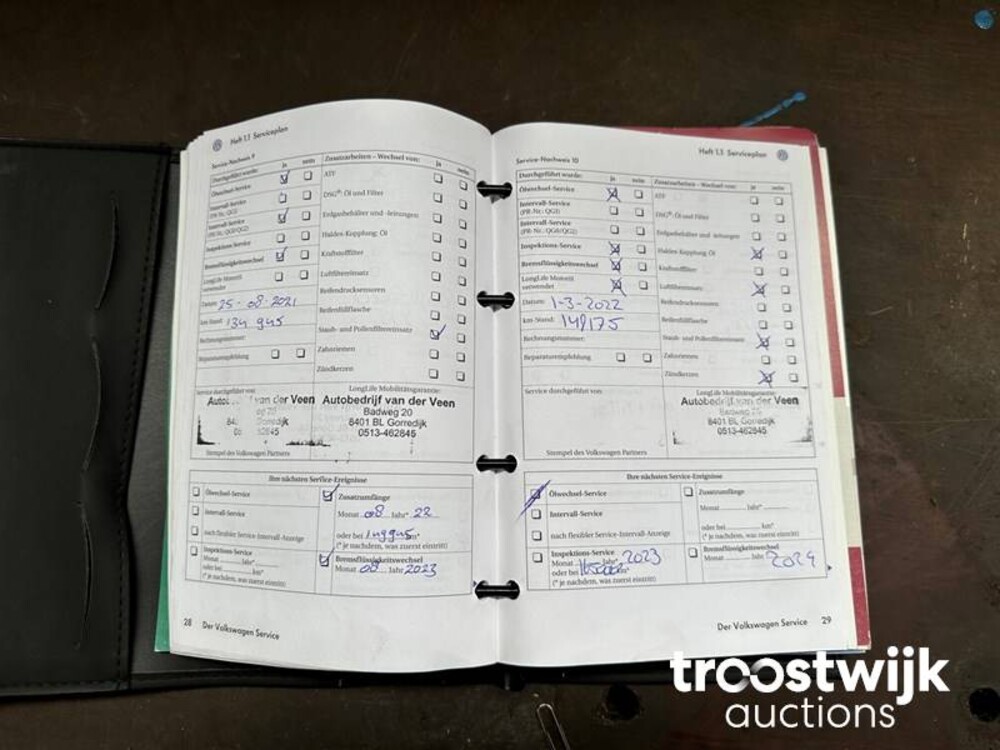 Heft 1.1 Serviceplan
Service-Nachweis 9
Durchgeführt wurde: ja nein Zusatzarbeiten – Wechsel von: ja nein
Ölwechsel-Service
ATF
Intervall-Service
(PR-Nr.: QG1)
DSG®: Öl und Filter
Intervall-Service
(PR-Nr.: QG0/QG2)
Erdgasbehälter und -leitungen
Inspektions-Service
Haldex-Kupplung: Öl
Bremsflüssigkeitswechsel
Kraftstofffilter
LongLife Motoröl
verwendet
Luftfiltereinsatz
Datum: 25-08-2021
Reifendrucksensoren
km-Stand: 134 945
Reifenfüllflasche
Rechnungsnummer:
Staub- und Pollenfiltereinsatz
Reparaturempfehlung
Zahnriemen
Zündkerzen
Service durchgeführt von:
LongLife Mobilitätsgarantie:
van der Veen
Gorredijk
Autobedrijf van der Veen
Badweg 20
8401 BL Gorredijk
0513-462845
Stempel des Volkswagen Partners
Ihre nächsten Service-Ereignisse
Ölwechsel-Service
Zusatzumfänge
Monat 08 Jahr* 22
Intervall-Service
oder bei km*
nach flexibler Service-Intervall-Anzeige
(* je nachdem, was zuerst eintritt)
Inspektions-Service
Monat Jahr*
oder bei km*
(* je nachdem, was zuerst eintritt)
Bremsflüssigkeitswechsel
Monat 08 Jahr 2023
28 Der Volkswagen Service
Heft 1.1 Serviceplan
Service-Nachweis 10
Durchgeführt wurde: ja nein Zusatzarbeiten – Wechsel von: ja nein
Ölwechsel-Service
ATF
Intervall-Service
(PR-Nr.: QG1)
DSG®: Öl und Filter
Intervall-Service
(PR-Nr.: QG0/QG2)
Erdgasbehälter und -leitungen
Inspektions-Service
Haldex-Kupplung: Öl
Bremsflüssigkeitswechsel
Kraftstofffilter
LongLife Motoröl
verwendet
Luftfiltereinsatz
Datum: 1-3-2022
Reifendrucksensoren
km-Stand: 148175
Reifenfüllflasche
Rechnungsnummer:
Staub- und Pollenfiltereinsatz
Reparaturempfehlung
Zahnriemen
Zündkerzen
Service durchgeführt von:
Autobedrijf van der Veen
Badweg 20
8401 BL Gorredijk
0513-462845
Stempel des Volkswagen Partners
Ihre nächsten Service-Ereignisse
Ölwechsel-Service
Zusatzumfänge
Monat Jahr*
Intervall-Service
oder bei km*
nach flexibler Service-Intervall-Anzeige
(* je nachdem, was zuerst eintritt)
Inspektions-Service
Monat Jahr* 2023
oder bei km*
(* je nachdem, was zuerst eintritt)
Bremsflüssigkeitswechsel
Monat Jahr 2024
Der Volkswagen Service 29
troostwijk
auctions